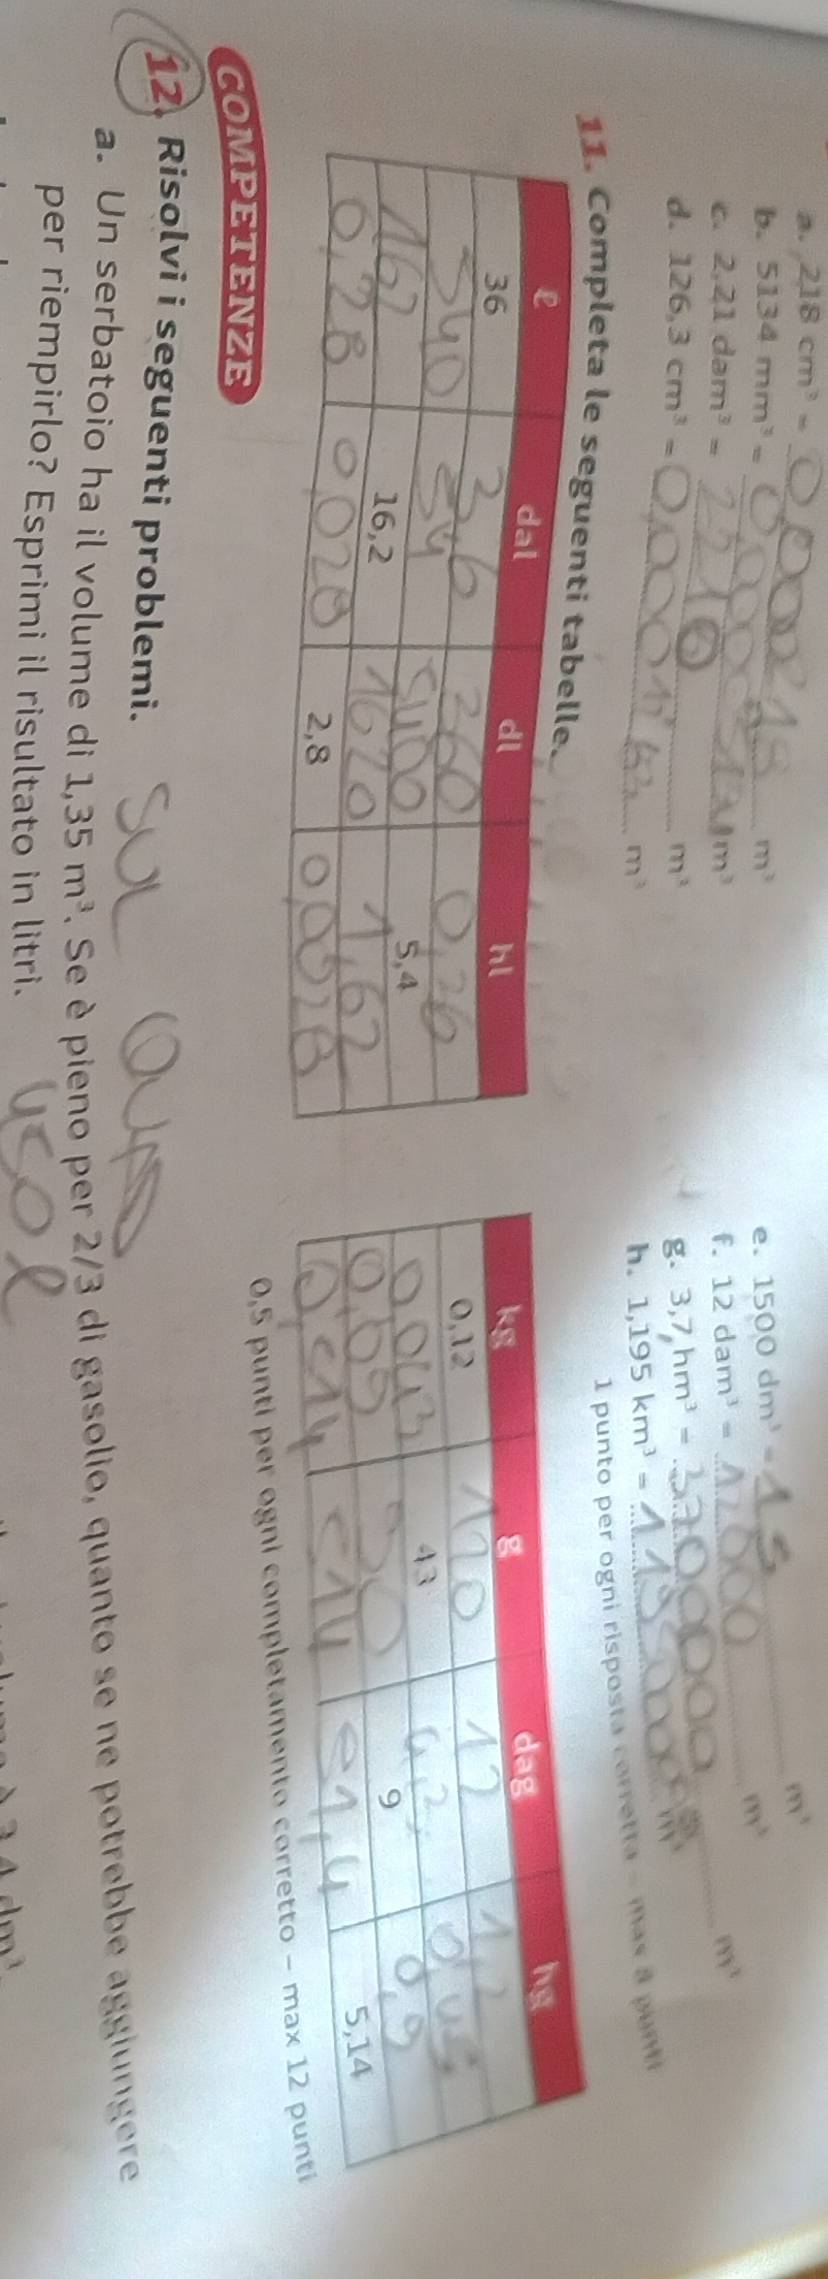 a. 218 cm³ = 0,000218 m³
b. 5134 mm³ = m³
c. 2,21 dam³ = 2210 m³
d. 126,3 cm³ = m³
e. 1500 dm³ = 1,5 m³
f. 12 dam³ = 12000 m³
g. 3,7 hm³ = 3700000 m³
h. 1,195 km³ = m³
1 punto per ogni risposta corretta - max 8 punti
11. Completa le seguenti tabelle.
ℓ dal dl hl
36 3,6 360 0,36
540 54 5400 5,4
162 16,2 1620 1,62
0,28 0,028 2,8 0,0028
kg g dag hg
0,12 120 12 1,2
0,043 43 4,3
0,09 90 9 0,9
0,514 514 51,4 5,14
0,5 punti per ogni completamento corretto - max 12 punti
COMPETENZE
12. Risolvi i seguenti problemi.
a. Un serbatoio ha il volume di 1,35 m³. Se è pieno per 2/3 di gasolio, quanto se ne potrebbe aggiungere
per riempirlo? Esprimi il risultato in litri. 450 ℓ